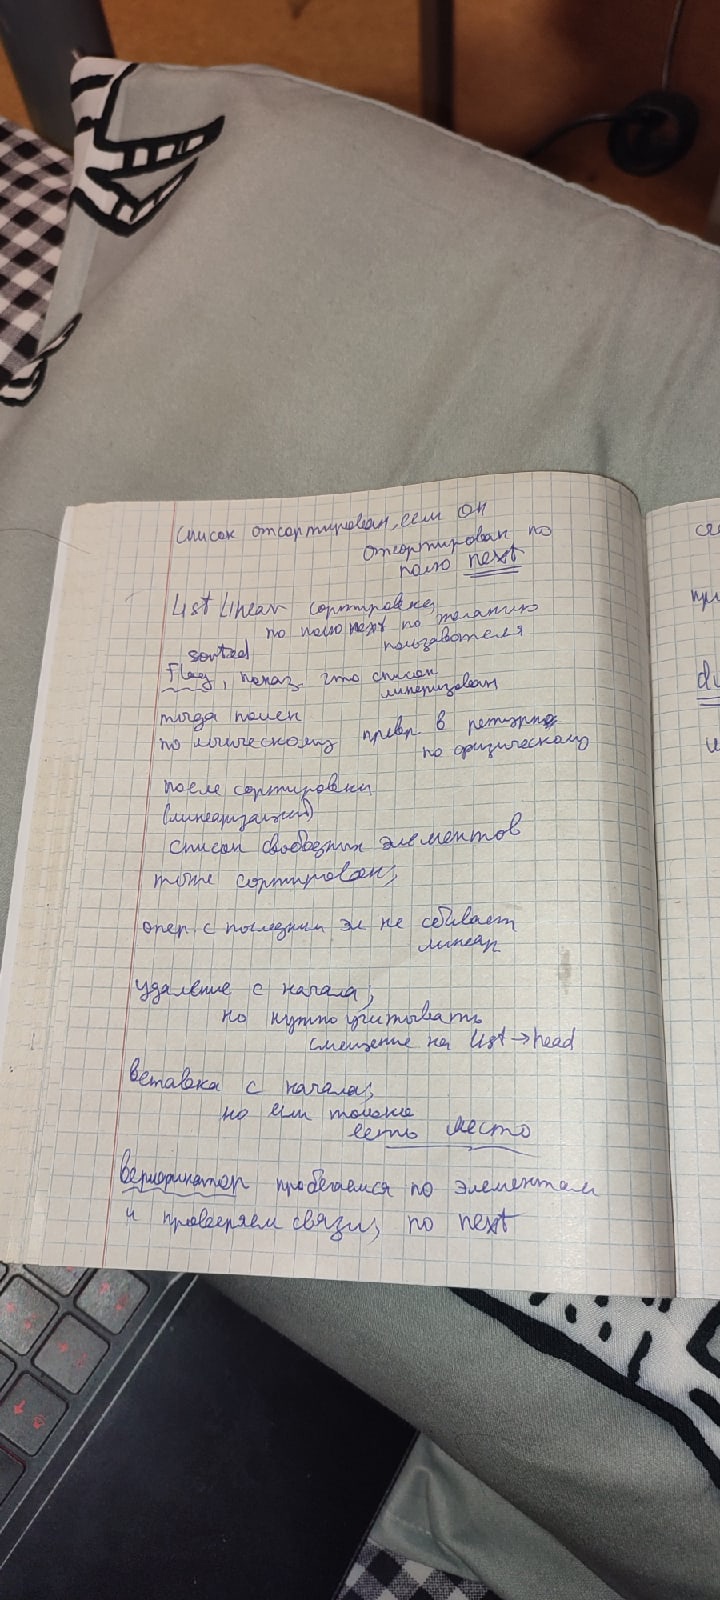 список отсортирован, если он
отсортирован по
полю next
List Linear сортировка,
по полю next по желанию
пользователя
sorted
Flag, показ. что список
линеризован
тогда поиск
по логическому превр. в
по физическому
после сортировки
(линеаризации)
список свободных элементов
тоже сортирован,
опер. с последним эл не сбивает
линеар
удаление с начала,
но нужно учитывать
смещение на list → head
вставка с начала,
но если только
есть место
верификатор пробегаемся по элементам
и проверяем связи, по next
се
при
и